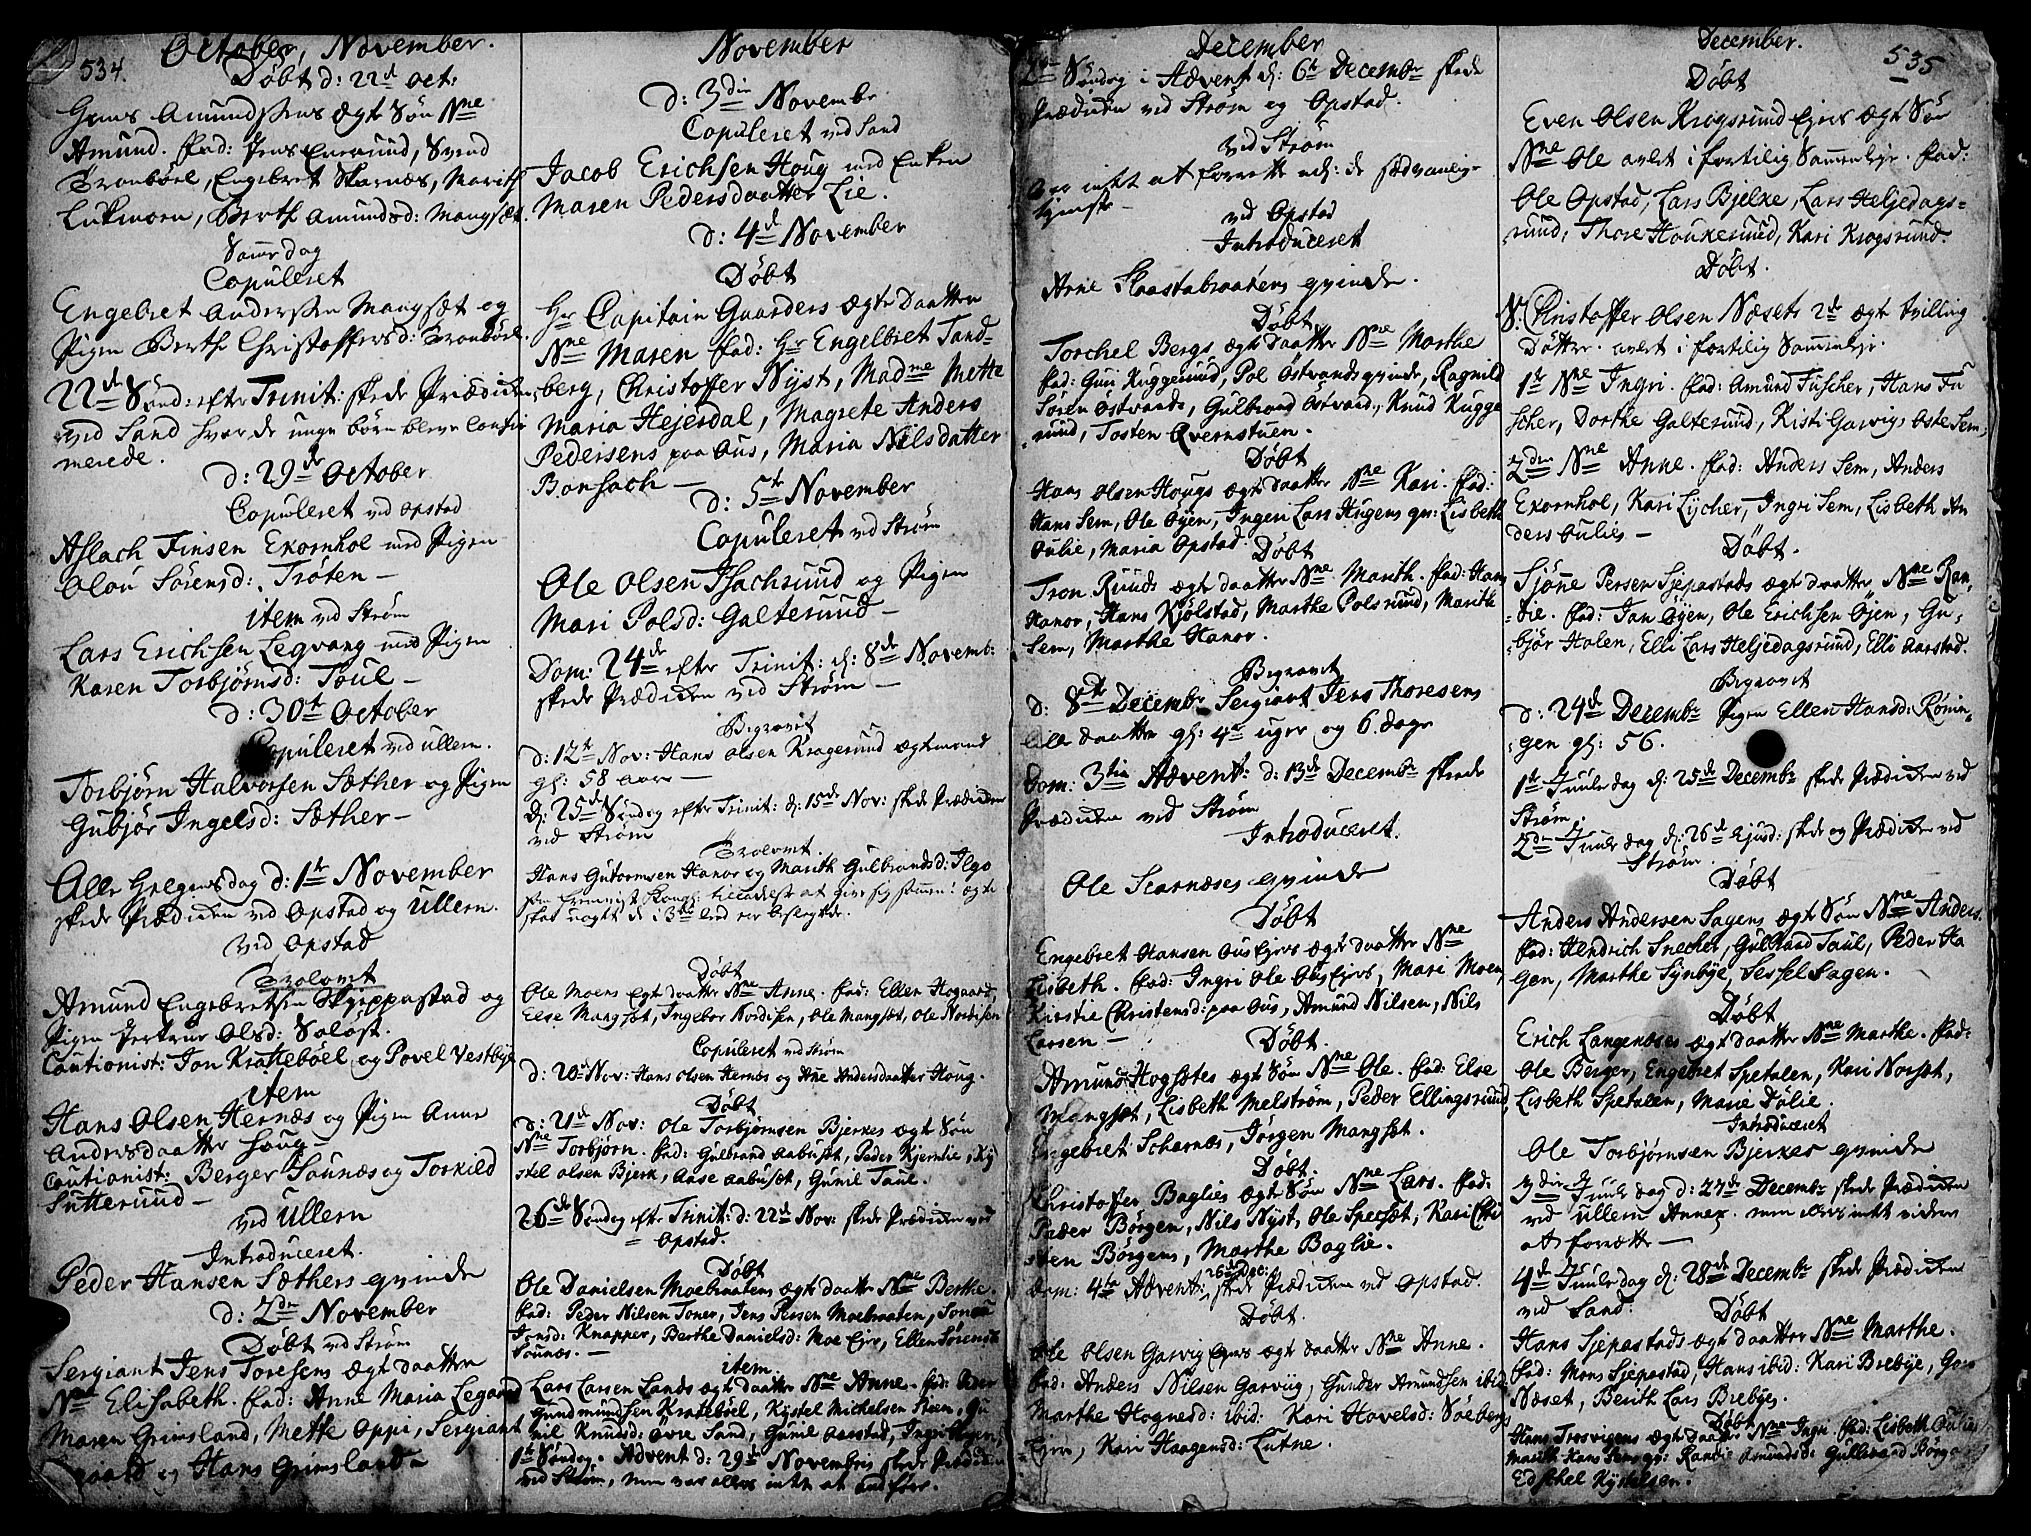 534.
October, November.
Døbt d: 22d Oct:
Amundssens ægte Søn Nne
Amund. fad: Jens Svend
Tronböel, Engebret Skarnæs, Marith
Lukmoen, Berth Amundsd: Mangsæt.
Samme dag
Copuleret
Engebret Anderssen Mangsæt og
Pigen Berthe Christoffersd: Tronböel.
22de Sønd: efter Trinit: skede Prædiken
ved Sand hvor de unge børn bleve confir
merede.
d: 29de October
Copuleret ved Opstad
Aslach Finsen Exornhol med Pigen
Olou Sörensd: Tröten -
item ved Strøm
Lars Erichsen Legvang med Pigen
Karen Torbjörnsd: Toul -
d: 30te October
Copuleret ved Ullern.
Torbjörn Halvorsen Sæther og Pigen
Gubjör Ingelsd: Sæther -
Alle Helgens dag d: 1te November
skede Prædiken ved Opstad og Ullern.
ved Opstad
Trolovet
Amund Engebretsen Skyppastad og
Pigen Olsd: Saløst.
Cautionist: Jon Krattebøel og Povel Vestbye
item
Hans Olsen Hernæs og Pigen Anne
Andersdaatter Houg -
Cautionist: Berger Sounæs og Torkild
Sutterund -
ved Ullern
Introduceret.
Peder Hansen Sæthers qvinde
d: 2den November
Døbt ved Strøm
Sergiant Jens Toresens ægte daatter
Nne Elisabeth. fad: Anne Maria Legaard
Maren Grimsland, Mette Oppi, Sergiant
og Hans Grimsland -
November
d: 3die Novembr
Copuleret ved Sand
Jacob Erichsen Houg med Enken
Maren Pedersdaatter Lie.
d: 4de November
Døbt
Hr Capitain Guarders ægte daatter
Nne Maren fad: Hr Engelbret Sand-
berg, Christoffer Nÿst, Madme Mette
Maria Hejersdal, Magrete Anders
Pedersens paa Ous, Maria Nilsdatter
Bonsach -
d: 5te November
Copuleret ved Strøm
Ole Olsen Isachsrund og Pigen
Mari Polsd: Galterund -
Dom: 24de efter Trinit: d: 8de Novemb:
skede Prædiken ved Strøm -
Begravet
d: 12te Nov: Hans Olsen Kragerund ægtemand
gl: 58 aar -
d: 25de Søndag efter Trinit: d: 15de Nov: skede Prædiken
ved Strøm
Trolovet.
Hans Gutormsen Hanor og Marith Gulbrandsd: Ilgo
i 3die leed er beslegtede.
Døbt
Ole Moens ægte daatter Nne Anne. fad: Ellen Hogaard,
Else Mangsæt, Ingebor Nordisen, Ole Mangsæt, Ole Nordisen
Copuleret ved Strøm
d: 20de Nov: Hans Olsen Hernæs og Ane Andersdaatter Houg.
Døbt
d: 21de Nov: Ole Torbjørnsen Bjerkes ægte Søn
Nne Torbjörn. fad: Gulbrand Aabusæt, Peder Kjernlie, Ky
stel Olsen Bjerk, Aase Aabusæt, Gunil Taul.
26de Søndag efter Trinit: d: 22de Nov: skede Prædiken ved
Opstad.
Døbt
Ole Danielsen Moebraatens ægte daatter Nne Berthe.
fad: Peder Nilsen Toner, Jens Persen Moebraaten,
Jonsd: Knapper, Berthe Danielsd: Moe Ejer, Ellen Sørensd:
Sounæs. -
item.
Lars Larsen Sands ægte daatter Nne Anne. fad: Peder
Gundmundsen Kratebøel, Kystel Michelsen Steen, Gu
nil Knudsd: Øvre Sand, Gunil Aarstad,
1te Søndag. Advent d: 29de Novembris skede Prædiken
ved Strøm, men var alles intet at udføre.
December
2den Søndag i Advent d: 6te Decembr skede
Prædiken ved Strøm og Opstad.
ved Strøm
intet at forrette de sædvanlige
ved Opstad
Introduceret
Arne Haastabraatens qvinde.
Døbt
Torchel Bergs ægte daatter Nne Marthe
fad: Guri Kuggerund, Pol Östvands qvinde, Ragnild
Sören Östvands, Gulbrand Östvand, Knud Kugge
rund, Tosten Qvernstuen.
Døbt
Hans Olsen Hougs ægte daatter Nne Kari. fad:
Hans Sem, Ole Öyen, Ingen Lars Hugens qv: Lisbeth
Oulie, Maria Opstad.
Døbt
Tron Ruuds ægte daatter Nne Marith. fad: Hans
Hanor, Hans Kjölstad, Marthe Polsrund, Marithe
Sem, Marthe Hanor.
Begravet
d: 8de Decembr Sergiant Jens Thoresens
lille daatter gl: 4re uger og 6 dage
Dom: 3tia Advent: d: 13de Decembr skede
Prædiken ved Strøm
Introduceret.
Ole Scarnæses qvinde
Døbt
Engebret Hansen Ous Ejers ægte daatter Nne
Lisbeth. fad: Ingri Ole Ous Ejers, Mari Moen,
Kirstie Christensd: paa Ous, Amund Nilsen, Nils
Larsen -
Døbt.
Amund Hogsætes ægte Søn Nne Ole. fad: Else
Mangsæt, Lisbeth Melström, Peder Ellingsrund,
Engebret Scharnæs, Jörgen Mangsæt.
Døbt.
Christoffer Baglies ægte Søn Nne Lars. fad:
Peder Börgen, Nils Nÿst, Ole Spersæt, Kari Chri
sten Börgens, Marthe Baglie.
Dom: 4ta Advent: 20de Dec: skede Prædiken ved Opstad.
Døbt.
Ole Olsen Garvig Ejers ægte daatter Nne Anne.
fad: Anders Nilsen Garviig, Gunder Amundsen ibid:
Marthe Hognesd: ibid: Kari Havelsd: Soebergs
Ejer, Kari Haagensd: Lutne.
December.
535
Døbt
Even Olsen Krogsrund Ejers ægte Søn
Nne Ole avlet i fortilig Sammenleje. fad:
Ole Opstad, Lars Bjelke, Lars Heljedags=
rund, Thore Houkerund, Kari Krogsrund.
Døbt.
Christoffer Olsen Næsets 2de ægte tvilling
Døttre. avlet i fortilig Sammenleje.
1te Nne Ingri. fad: Amund Fuscher, Hans Fu
scher, Dorthe Galterund, Kisti Garvig, Oste Sem,
2den Nne Anne. fad: Anders Sem, Anders
Exornhol, Kari Lÿcher, Ingri Sem, Lisbeth An
ders Oulies -
Døbt.
Sjöne Persen Sjepastads ægte daatter Nne Ran,
die. fad: Jan Öyen, Ole Erichsen Öjen, Gu,
björ Holen, Elli Lars Heljedagsrund, Elli Aarstad.
Begravet
d: 24de Decembr Pigen Ellen Hansd: Rönin,
gen gl: 56.
1te Juule dag d: 25de Decembr skede Prædiken ved
Strøm.
2den Juule dag d: 26de Ejusd: skede og Prædiken ved
Strøm.
Døbt
Anders Andersen Sagens ægte Søn Nne Anders.
fad: Hendrich Snecher, Gulbrand Taul, Peder Ha
gen, Marthe Synbÿe, Sessel Sagen.
Døbt
Erich Langenæses ægte daatter Nne Marthe. fad:
Ole Berger, Engebret Spetalen, Kari Norsæt,
Lisbeth Spetalen, Marie Dölie.
Introduceret
Ole Torbjørnsen Bjerkes qvinde
3die Juule dag d: 27de Decembr skede Prædiken
ved Ullern Annex. men intet videre
at forrette -
4de Juule dag d: 28de Decembr skede Prædiken
ved Sand.
Døbt
Hans Sjepastads ægte daatter Nne Marthe.
fad: Mons Sjepastad, Hans ibid: Kari Brebÿe,
Næset, Berith Lars Brebÿes.
Døbt
Hans Trosvigens ægte daatter Nne Ingri fad: Lisbeth Oulie,
Marith Hans Sems qv: Randie Amundsd: Gulbrand Börge
Edschel Kÿstelsen.